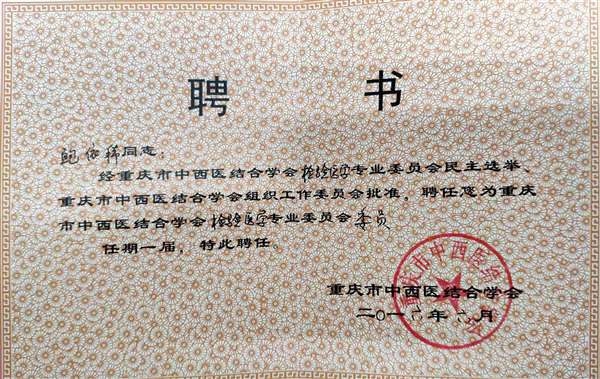 聘 书
鲍依稀同志：
经重庆市中西医结合学会检验医学专业委员会民主选举、
重庆市中西医结合学会组织工作委员会批准，聘任您为重庆
市中西医结合学会检验医学专业委员会委员
任期一届，特此聘任。
重庆市中西医结合学会
二〇一六年六月